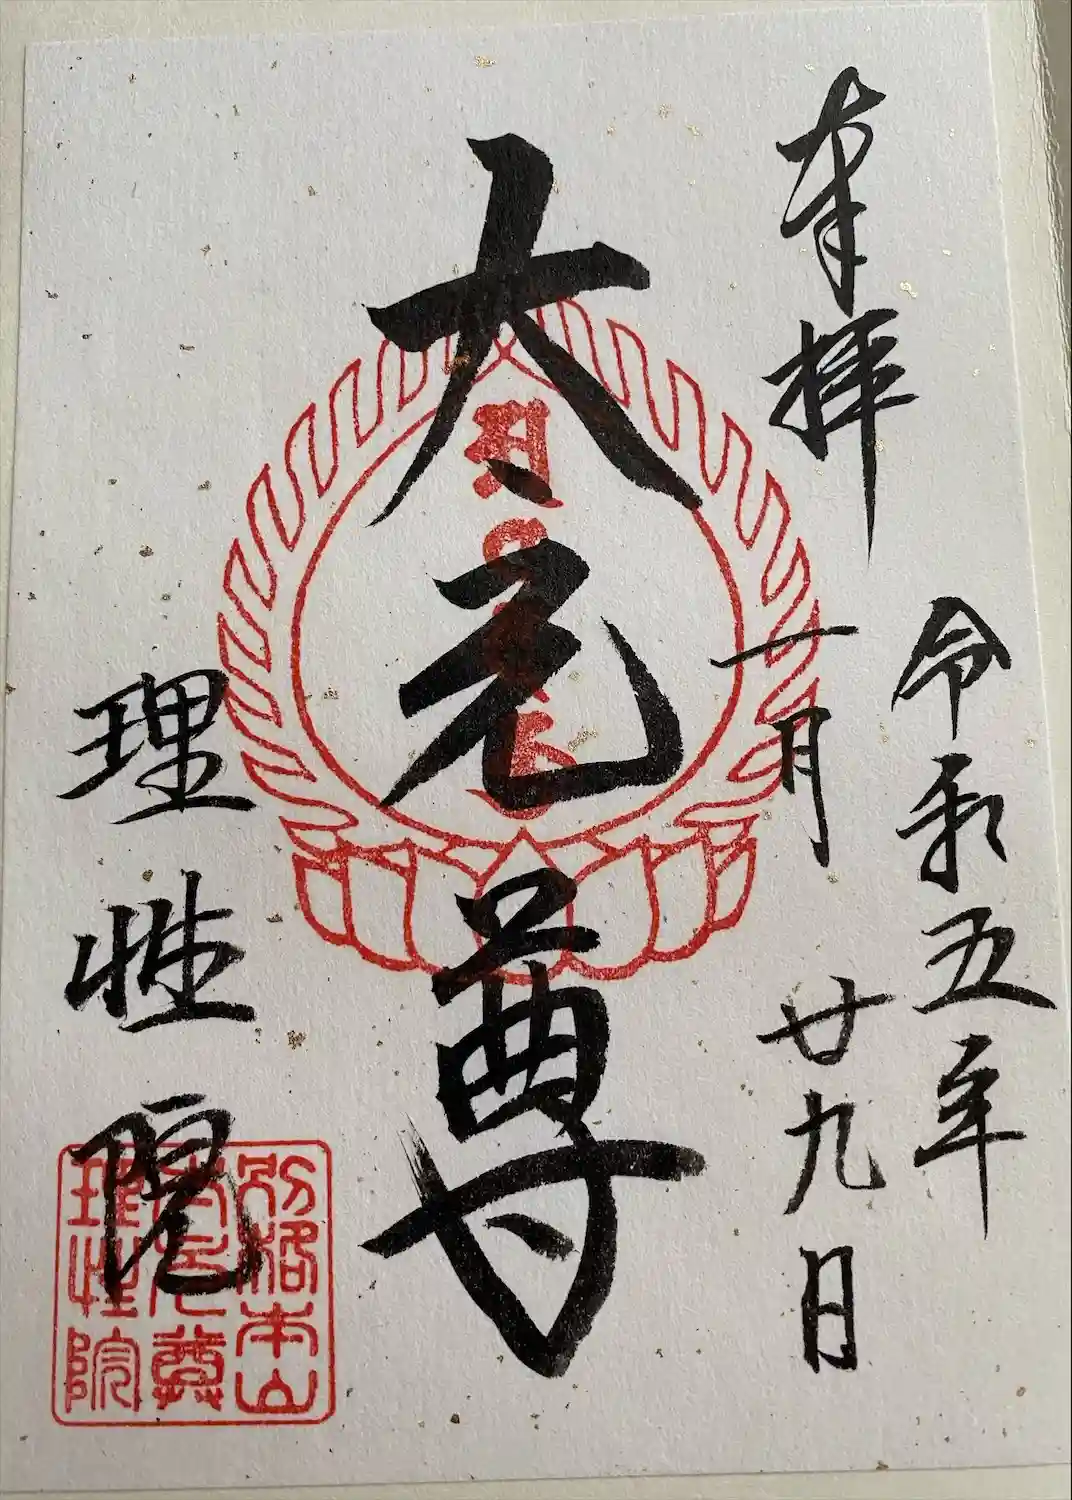 奉拝
令和五年
一月廿九日
大元尊
理性院
別格本山
大元尊
理性院